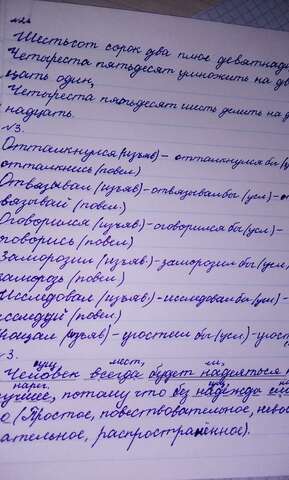 Шестьсот сорок два плюс девятнадц
Четыреста пятьдесят умножить на дв
цать один,
Четыреста пятьдесят шесть делить на д
надцать.
№3.
Оттолкнулся (изъяв) - оттолкнулся бы (у
оттолкнись (повел.)
Отвязывал (изъяв) - отвязывал бы (усл) - от
вязывай (повел.)
Оговорился (изъяв) - оговорился бы (усл) -
говорись (повел)
Заморозил (изъяв.) - заморозил бы (усл,
заморозь (повел)
Исследовал (изъяв.) - исследовал бы (усл) -
сследуй (повел)
(изъяв) - угостил бы (усл) - угост
3.
сущ. мест, гл,
Человек всегда будет надеяться н
нареч. сущ
лучшее, потому что без надежды
(Простое, повествовательное,
ательное, распространённое).